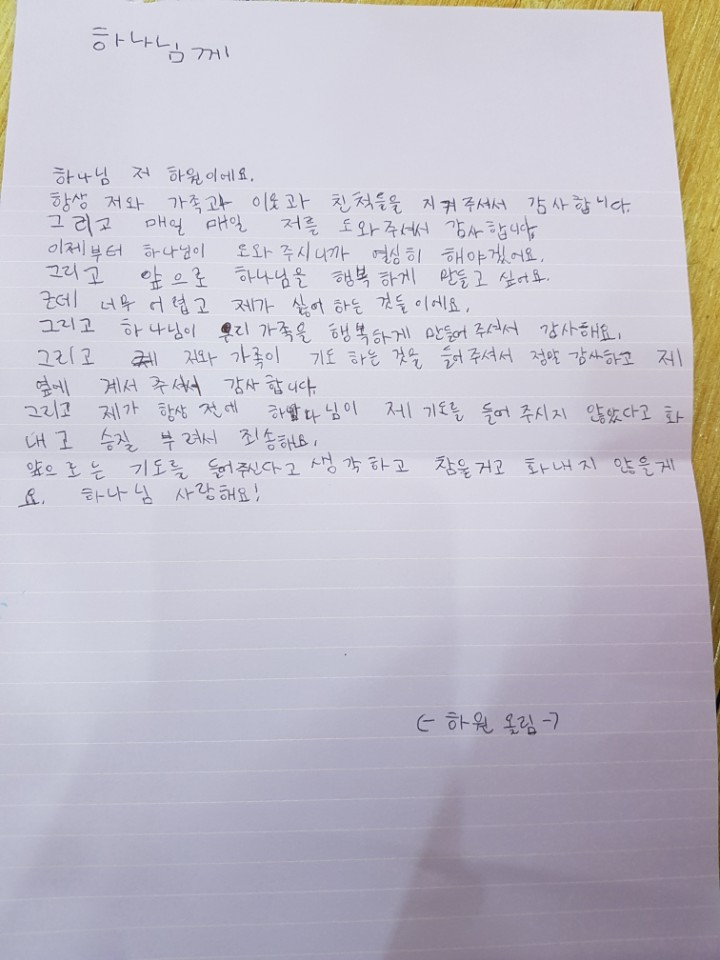 하나님께
하나님 저 하원이에요.
항상 저와 가족과 이웃과 친척들을 지켜주셔서 감사합니다.
그리고 매일 매일 저를 도와주셔서 감사합니다
이제부터 하나님이 도와주시니까 열심히 해야겠어요.
그리고 앞으로 하나님을 행복하게 만들고 싶어요.
근데 너무 어렵고 제가 싫어하는 것들이에요.
그리고 하나님이 우리 가족을 행복하게 만들어 주셔서 감사해요.
그리고 저와 가족이 기도 하는 것을 들어주셔서 정말 감사하고 제
옆에 계서 주셔서 감사합니다.
그리고 제가 항상 전에 하나님이 제 기도를 들어 주시지 않았다고 화
내고 승질 부려서 죄송해요.
앞으로는 기도를 들어주신다고 생각하고 참을거고 화내지 않을게
요. 하나님 사랑해요!
(- 하원 올림 -)